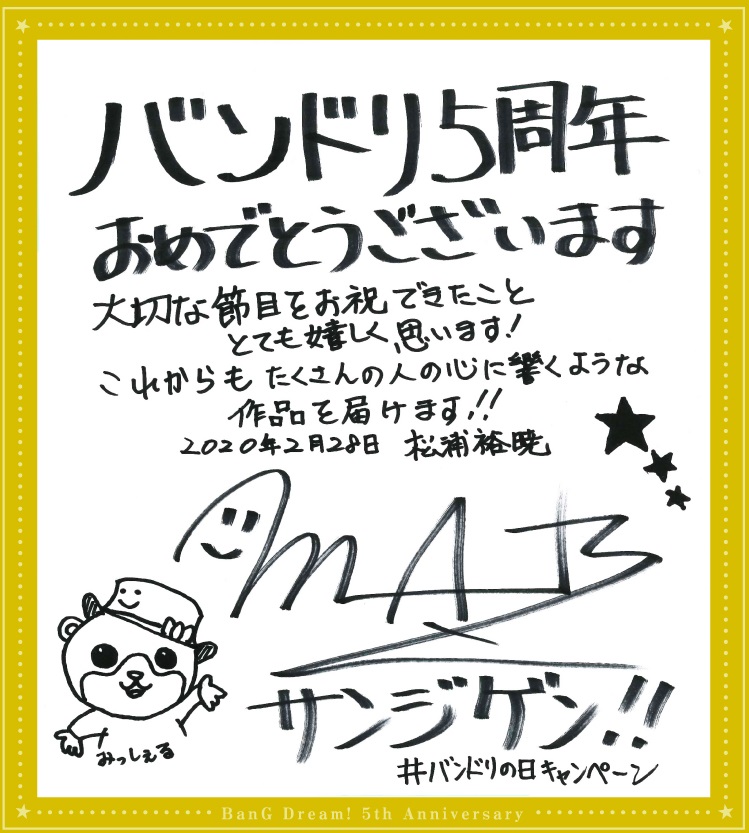 バンドリ5周年
おめでとうございます
大切な節目をお祝いできたこと
とても嬉しく思います!
これからもたくさんの人の心に響くような
作品を届けます!!
2020年2月28日 松浦裕暁
サンジゲン!!
みっしぇる
#バンドリの日キャンペーン
BanG Dream! 5th Anniversary